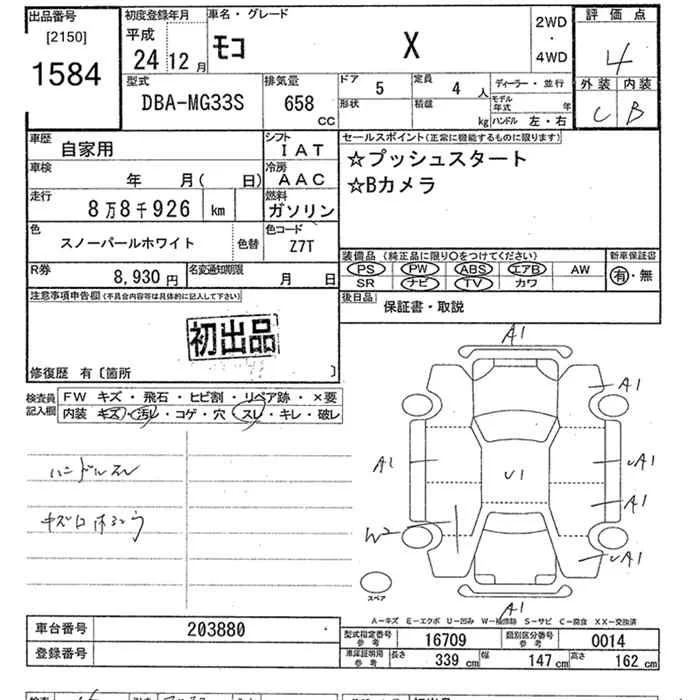 出品番号
[2150]
1584
初度登録年月
平成
24 12月
車名・グレード
モコ X
2WD
・
4WD
評価点
4
外装 内装
C B
型式
DBA-MG33S
排気量
658 CC
ドア 5
定員 4人
ディーラー・並行
形状
積載 kg
モデル年式 年
ハンドル 左・右
車歴 自家用
シフト IAT
車検 年 月( 日)
冷房 AAC
走行 8万8千926 km
燃料 ガソリン
色 スノーパールホワイト 色替
色コード Z7T
R券 8,930円
名変通知期限 月 日
セールスポイント(正常に機能するものに限ります)
☆プッシュスタート
☆Bカメラ
装備品 (純正品に限り○をつけてください)
PS PW ABS エアB AW
SR ナビ TV カワ
新車保証書
有・無
後日品 保証書・取説
注意事項申告欄(不具合内容等は具体的に記入して下さい)
初出品
修復歴 有〔箇所 〕
検査員記入欄
FW キズ・飛石・ヒビ割・リペア跡・×要
内装 キズ・汚レ・コゲ・穴・スレ・キレ・破レ
ハンドルスレ
A1
A1
A1
U1
UA1
A1
W2
UA1
A1
スペア
A-キズ E-エクボ U-凹み W-補修跡 S-サビ C-腐食 XX-交換済
車台番号 203880
登録番号
型式指定番号参考 16709
類別区分番号参考 0014
車庫証明用参考 長さ 339 cm 幅 147 cm 高さ 162 cm